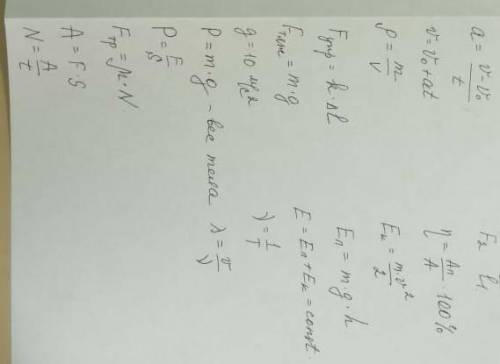 a = v-v₀/t
v = v₀ + at
ρ = m/V
Fупр = k·Δl
Fтяж = m·g
g = 10 м/с²
P = m·g – вес тела
P = F/S
Fтр = μ·N
A = F·S
N = A/t
F₂ l₁
η = Aп/A · 100%
Eк = m·v²/2
Eп = m·g·h
E = Eп + Eк = const.
ν = 1/T
λ = v/ν